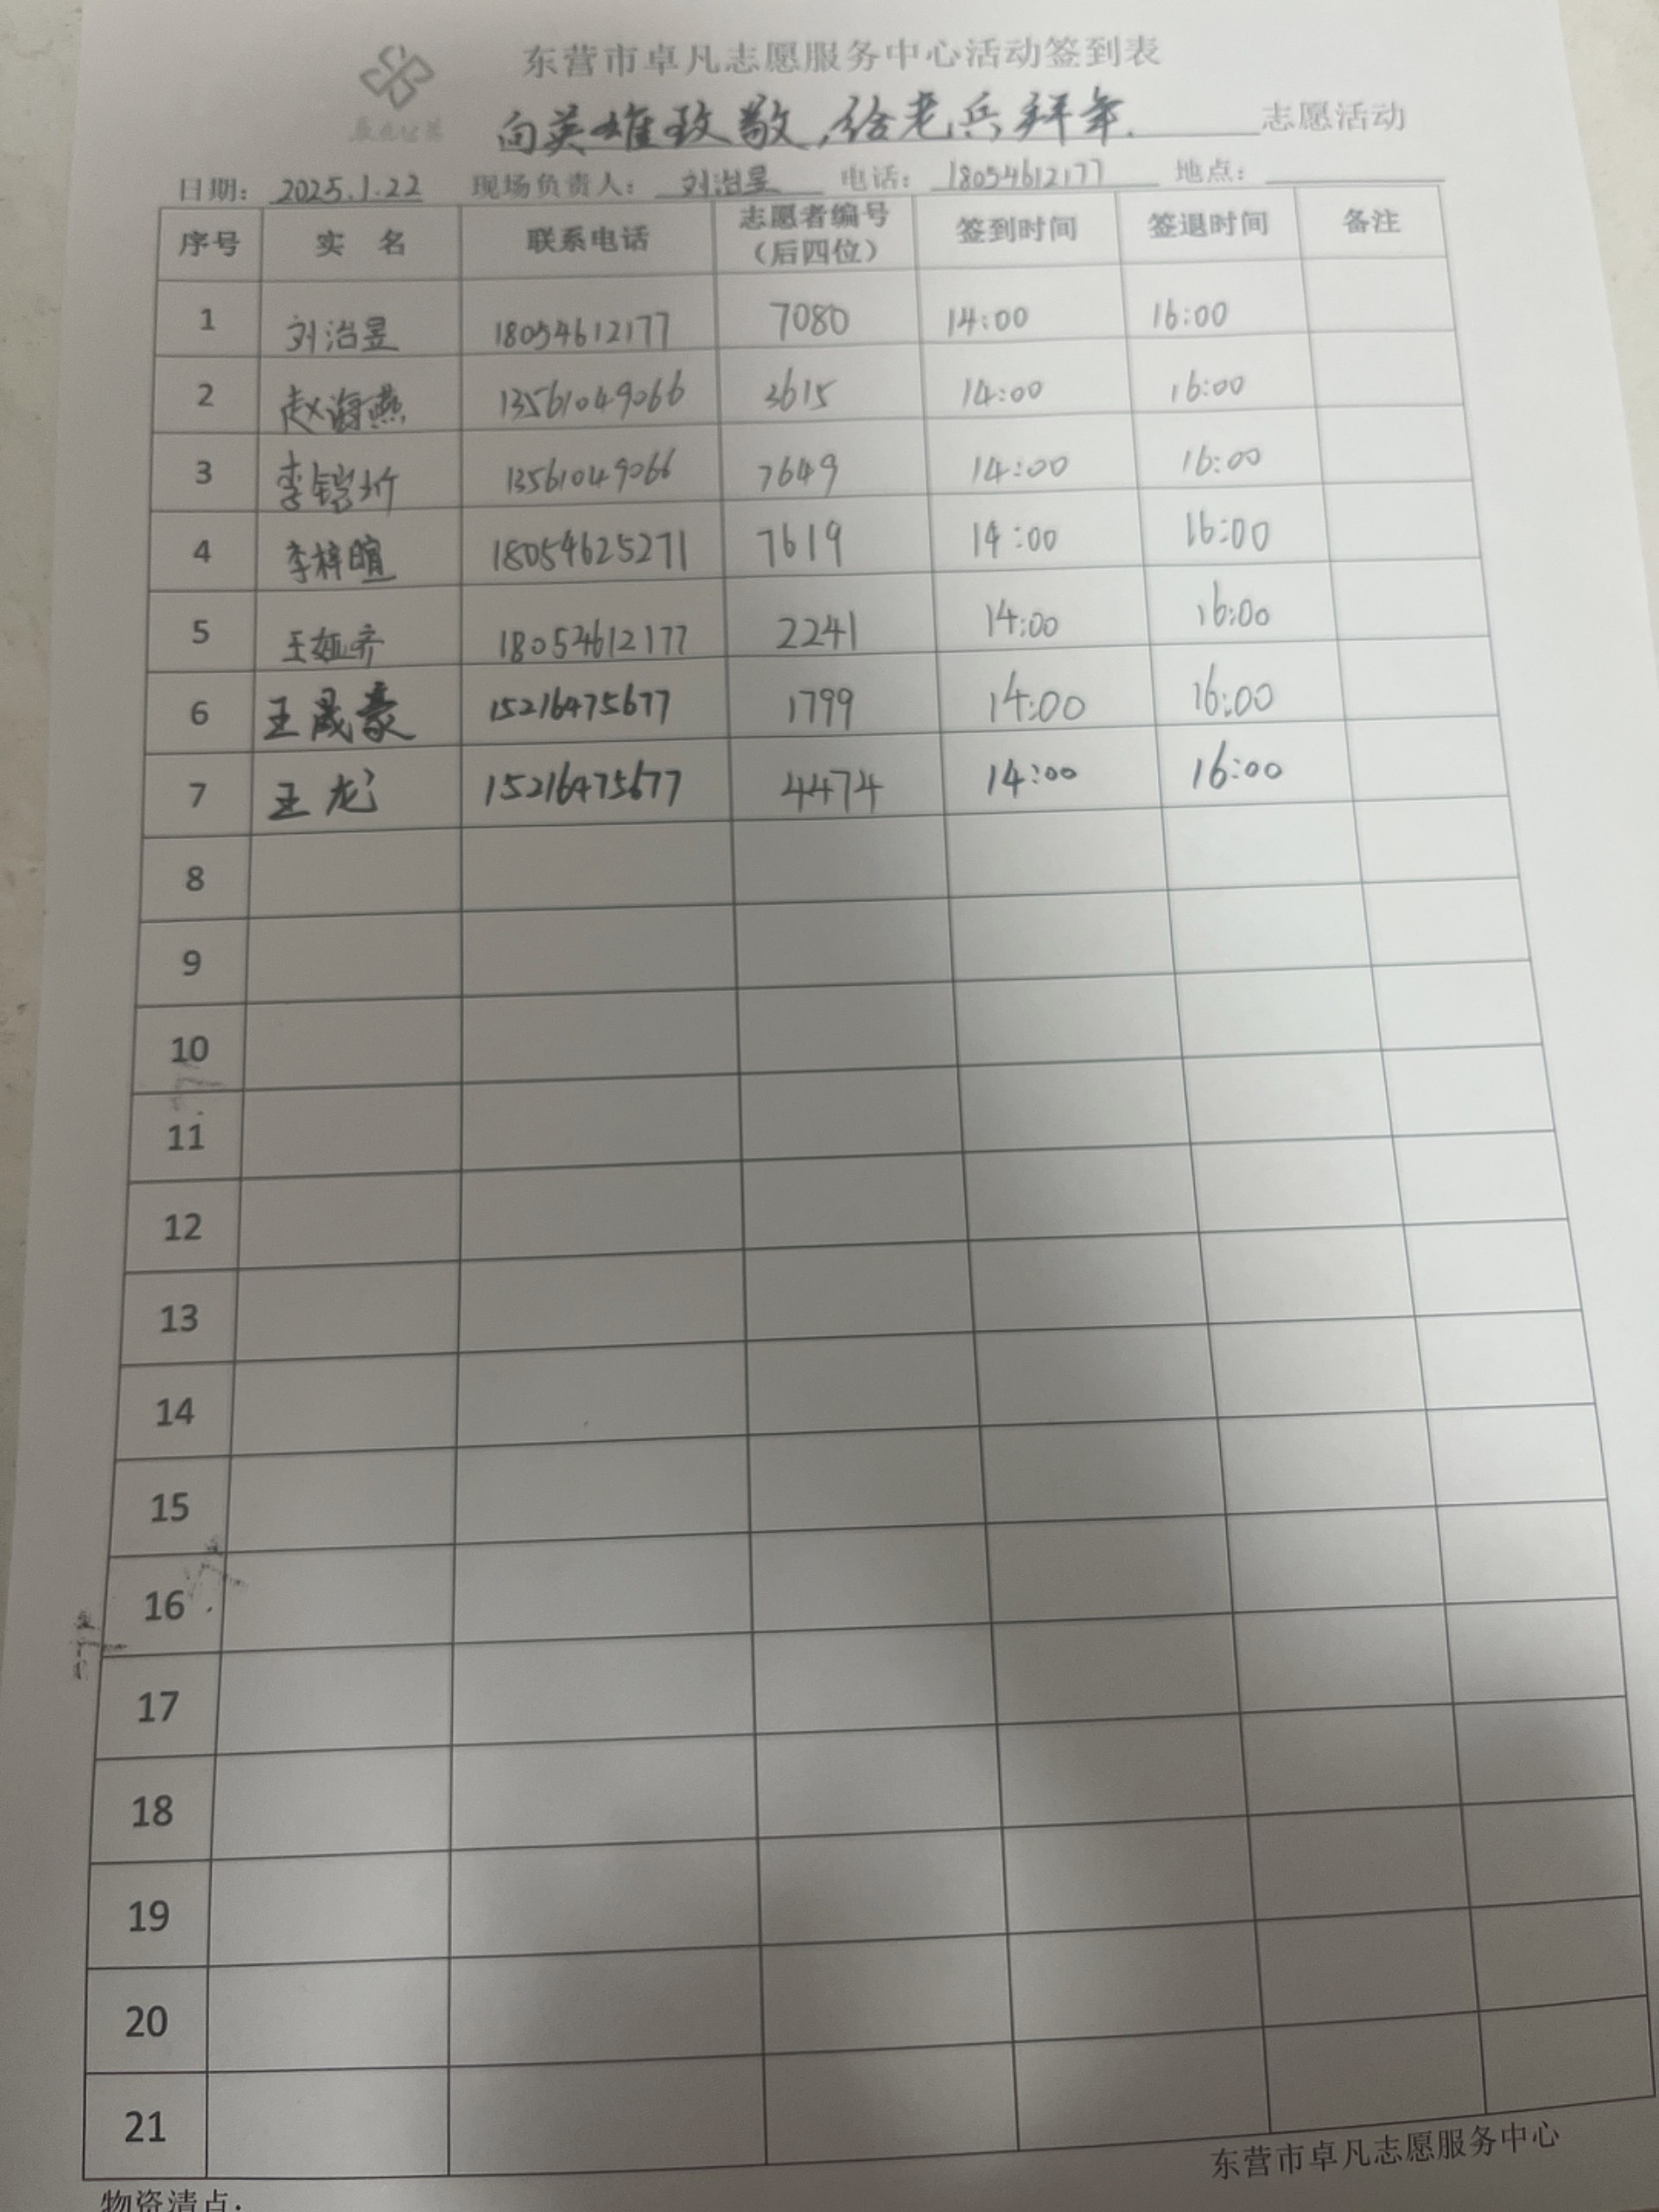 东营市卓凡志愿服务中心活动签到表
向英雄致敬,给老兵拜年. 志愿活动
日期: 2025.1.22 现场负责人: 刘治昱 电话: 18054612177 地点:
序号 实 名 联系电话 志愿者编号(后四位) 签到时间 签退时间 备注
1 刘治昱 18054612177 7080 14:00 16:00
2 赵海燕 13561049066 3615 14:00 16:00
3 李铠圻 13561049066 7649 14:00 16:00
4 李梓暄 18054625271 7619 14:00 16:00
5 王娅齐 18054612177 2241 14:00 16:00
6 王晟豪 15216475677 1799 14:00 16:00
7 王龙 15216475677 4474 14:00 16:00
8
9
10
11
12
13
14
15
16
17
18
19
20
21
东营市卓凡志愿服务中心
物资清点: